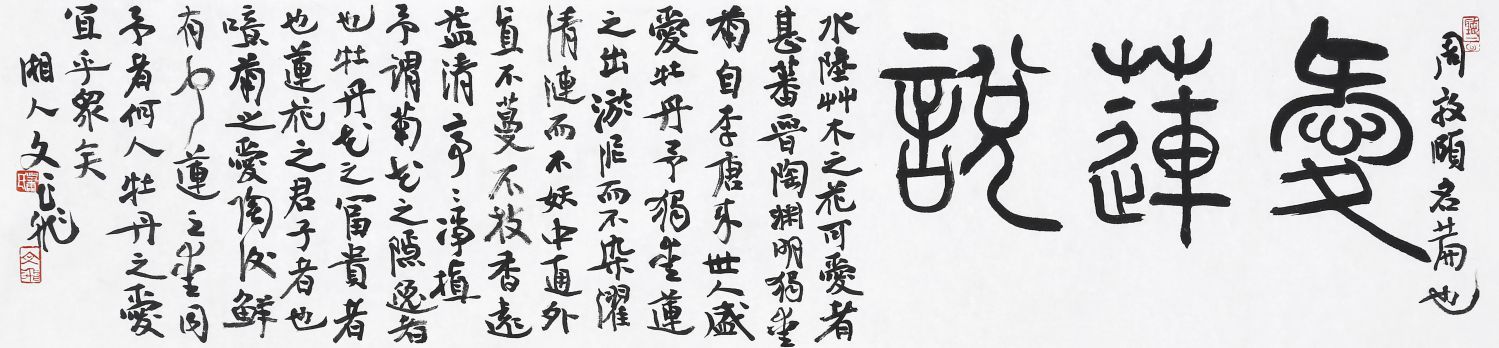 周敦頤名篇也
愛蓮說
水陸艸木之花可愛者
甚蕃晉陶淵明獨愛
菊自李唐来世人盛
愛牡丹予獨愛蓮
之出淤泥而不染濯
清漣而不妖中通外
直不蔓不枝香遠
益清亭〻淨植
予謂菊花之隱逸者
也牡丹花之富貴者
也蓮花之君子者也
噫菊之愛陶後鮮
有聞蓮之愛同
予者何人牡丹之愛
宜乎眾矣
湘人文飛